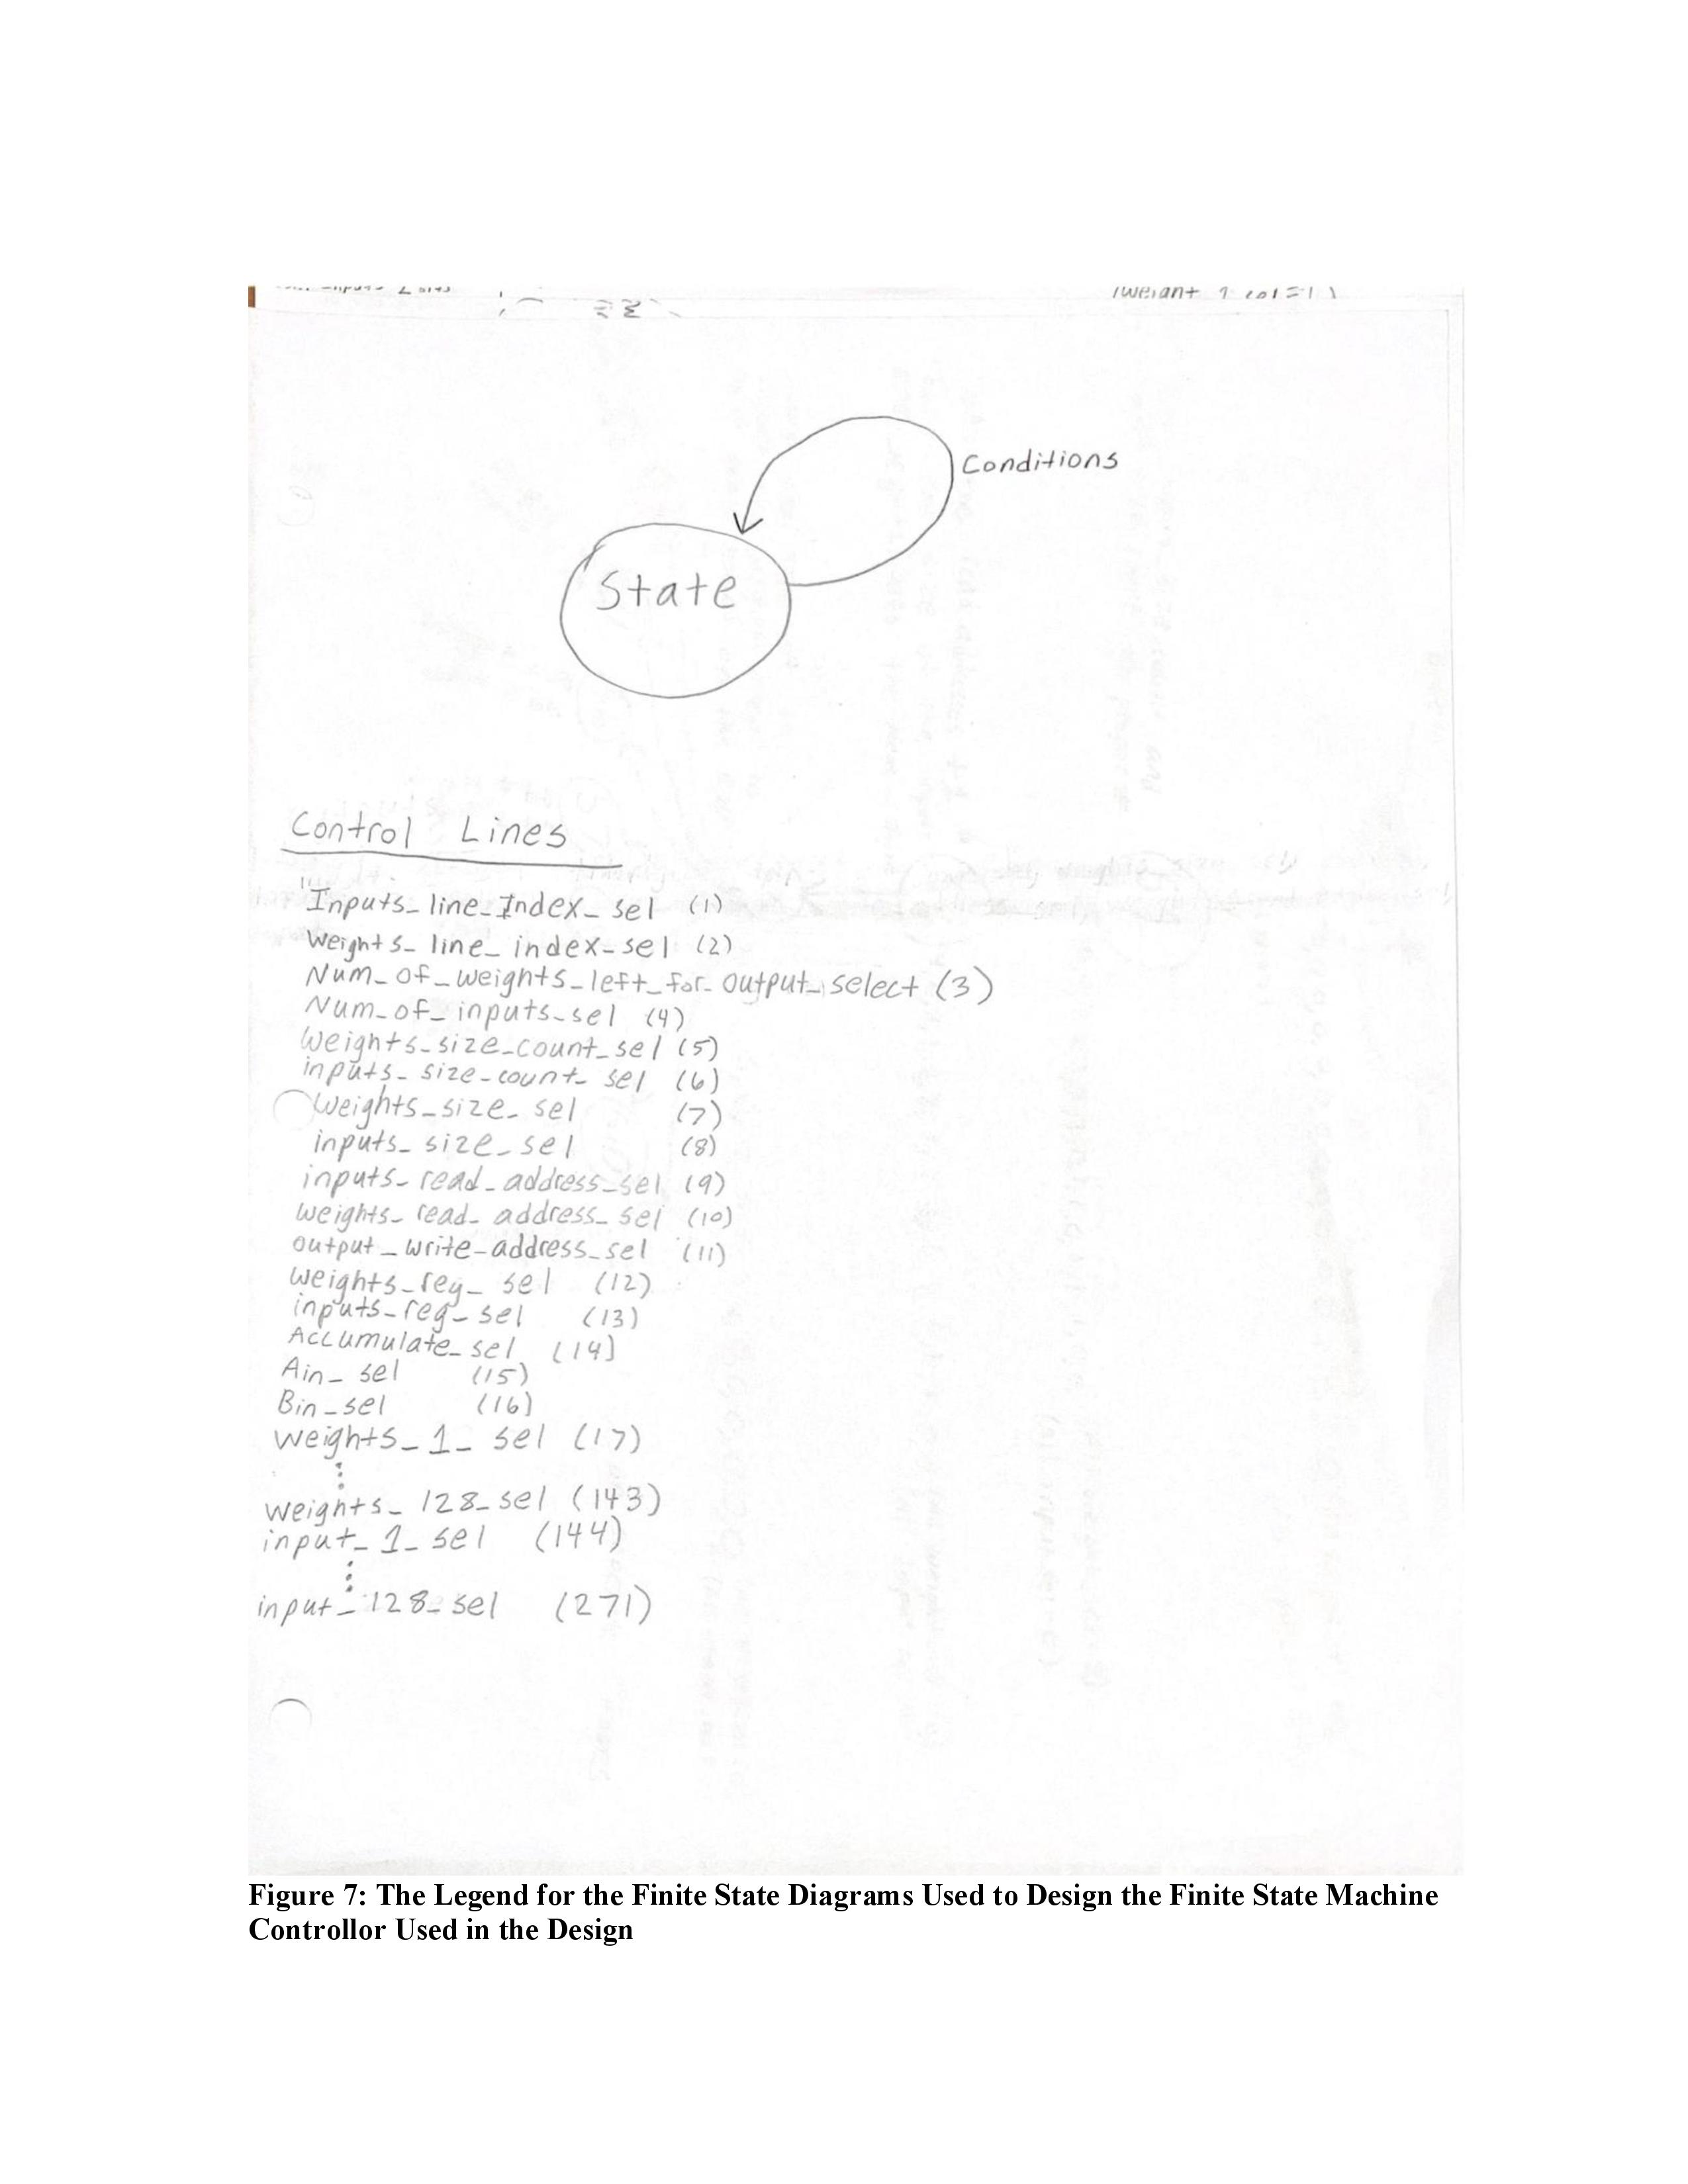 Conditions
State
Control Lines
Inputs_line_Index_sel (1)
Weights_line_index_sel (2)
Num_of_weights_left_for_output_select (3)
Num_of_inputs_sel (4)
Weights_size_count_sel (5)
inputs_size_count_sel (6)
Weights_size_sel (7)
inputs_size_sel (8)
inputs_read_address_sel (9)
weights_read_address_sel (10)
output_write_address_sel (11)
Weights_reg_sel (12)
inputs_reg_sel (13)
Accumulate_sel (14)
Ain_sel (15)
Bin_sel (16)
Weights_1_sel (17)
⋮
Weights_128_sel (143)
input_1_sel (144)
⋮
input_128_sel (271)
Figure 7: The Legend for the Finite State Diagrams Used to Design the Finite State Machine
Controllor Used in the Design